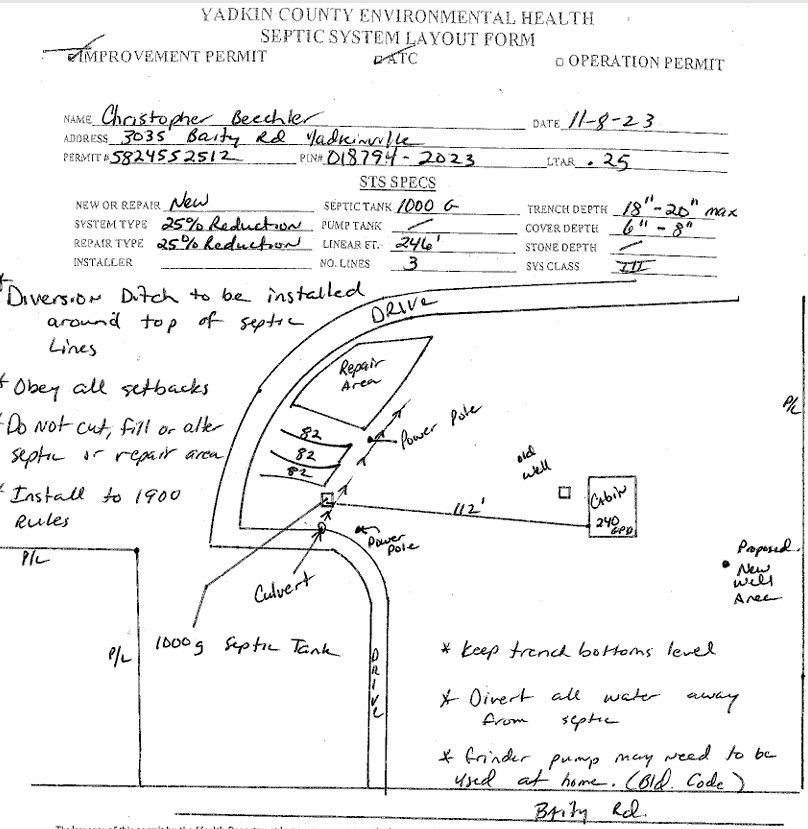 YADKIN COUNTY ENVIRONMENTAL HEALTH
SEPTIC SYSTEM LAYOUT FORM
IMPROVEMENT PERMIT ATC OPERATION PERMIT
NAME Christopher Beechler DATE 11-8-23
ADDRESS 3035 Baity Rd Yadkinville
PERMIT # 5824552512 PIN# 018794-2023 LTAR .25
STS SPECS
NEW OR REPAIR New SEPTIC TANK 1000 G TRENCH DEPTH 18"-20" max
SYSTEM TYPE 25% Reduction PUMP TANK / COVER DEPTH 6" - 8"
REPAIR TYPE 25% Reduction LINEAR FT. 246' STONE DEPTH /
INSTALLER NO. LINES 3 SYS CLASS III
* Diversion Ditch to be installed
around top of septic
Lines
DRIVE
Repair
Area
* Obey all setbacks
P/L
* Do Not cut, fill or alter
septic or repair area
82
82
82
Power Pole
old
well
* Install to 1900
Rules
112'
Cabin
240
GPD
Power
Pole
P/L
Proposed
New
Well
Area
Culvert
1000g Septic Tank
P/L
DRIVE
* Keep trench bottoms level
* Divert all water away
from septic
* Grinder pump may need to be
used at home. (Bld. Code)
Baity Rd.